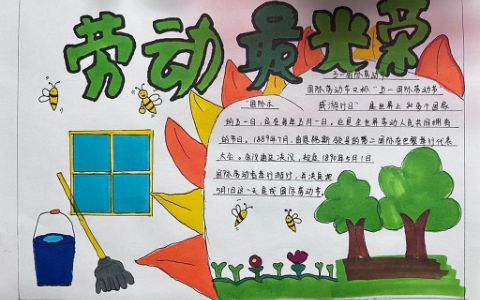 劳动最光荣
五一国际劳动节
国际劳动节又称"五一国际劳动节
"国际示
威游行日" 是世界上80多个国家
的五一日,定在每年五月一日,它是全世界劳动人民共同拥有
的节日。1889年7月,由恩格斯领导的第二国际在巴黎举行代表
大会。会议通过决议,规定1890年5月1日
国际劳动者举行游行,并决定把
5月1日这一天定成国际劳动节。